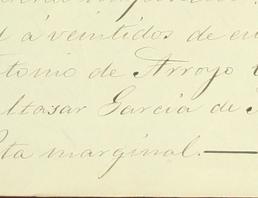 á veintidos de en
tonio de Arroyo
ltasar Garcia de
ta marginal.—